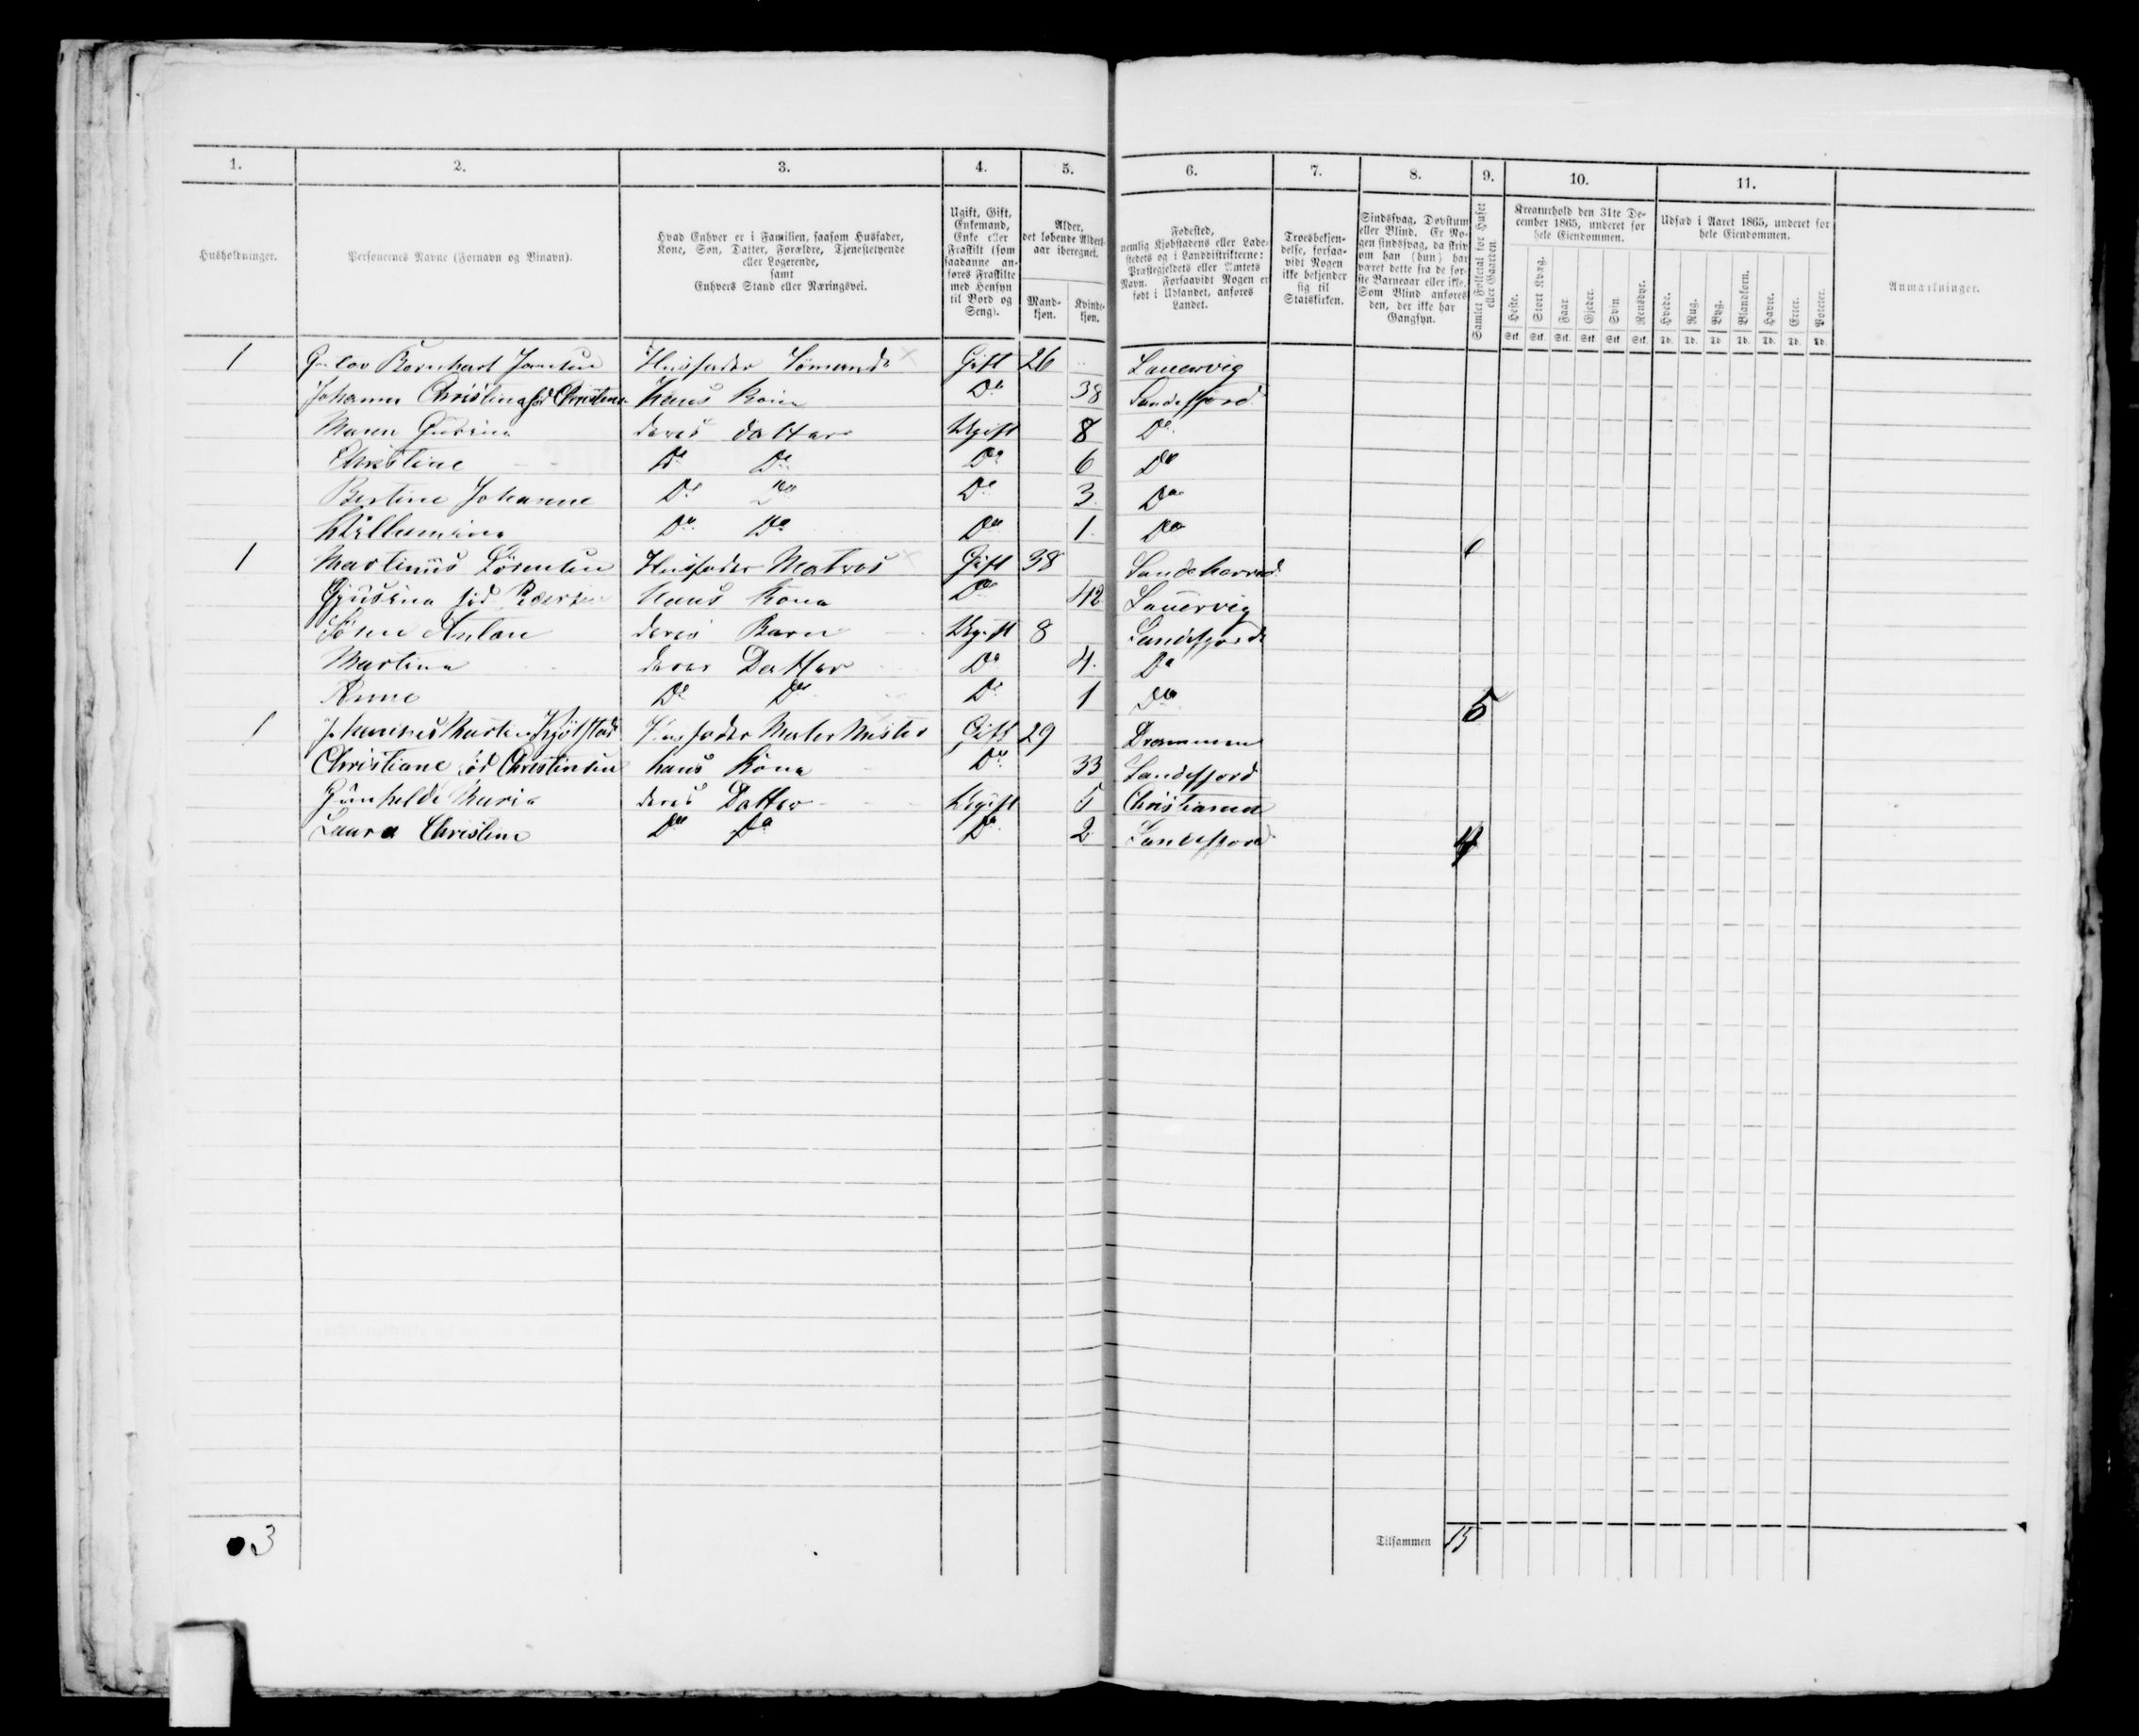 1. 2. 3. 4. 5. 6. 7. 8. 9. 10. 11.
Husholdninger.
Personernes Navne (Fornavn og Binavn).
Hvad Enhver er i Familien, saasom Husfader,
Kone, Søn, Datter, Forældre, Tjenestetyende
eller Logerende,
samt
Enhvers Stand eller Næringsvei.
Ugift, Gift,
Enkemand,
Enke eller
Fraskilt (som
saadanne an-
føres Fraskilte
med Hensyn
til Bord og
Seng).
Alder,
det løbende Alders-
aar iberegnet.
Mand-
kjøn.
Kvinde-
kjøn.
Fødested,
nemlig Kjøbstadens eller Lade-
stedets og i Landdistrikterne:
Præstegjeldets eller Amtets
Navn. Forsaavidt Nogen er
født i Udlandet, anføres
Landet.
Troesbekjen-
delse, forsaa-
vidt Nogen
ikke bekjender
sig til
Statskirken.
Sindssvag, Døvstum
eller Blind. Er No-
gen sindssvag, da skriv
om han (hun) har
været dette fra de før-
ste Barneaar eller ikke.
Som Blind anføres
den, der ikke har
Gangsyn.
Samlet Folketal for Huset
eller Gaarden.
Kreaturhold den 31te De-
cember 1865, underet for
hele Eiendommen.
Heste. Stort Kvæg. Faar. Gjeder. Svin. Rensdyr.
Stk. Stk. Stk. Stk. Stk. Stk.
Udsæd i Aaret 1865, underet for
hele Eiendommen.
Hvede. Rug. Byg. Blandkorn. Havre. Erter. Poteter.
Td. Td. Td. Td. Td. Td. Td.
Anmærkninger.
1 Bernhart Jansen Husfader Sømand Gift 26 Laurvig
Johanne Christine fød Christensen Hans Kone Do 38 Sandefjord
Maren deres datter Ugift 8 Do
Christine Do Do Do 6 Do
Bertine Johanne Do Do Do 3 Do
Willumine Do Do Do 1 Do 6
1 Martinus Sørensen Husfader Matros Gift 38 Sandeherred
fød Pedersen Hans Kone Do 42 Laurvig
Søren Anton deres Barn Ugift 8 Sandefjord
Martine deres Datter Do 4 Do
Anne Do Do Do 1 Do 5
1 Johannes Martin Husfader Maler Mester Gift 29 Drammen
Christiane fød Christensen hans Kone Do 33 Sandefjord
Gunhilde Maria deres Datter Ugift 5 Christiania
Laura Christine Do Do Do 2 Sandefjord 4
3 Tilsammen 15